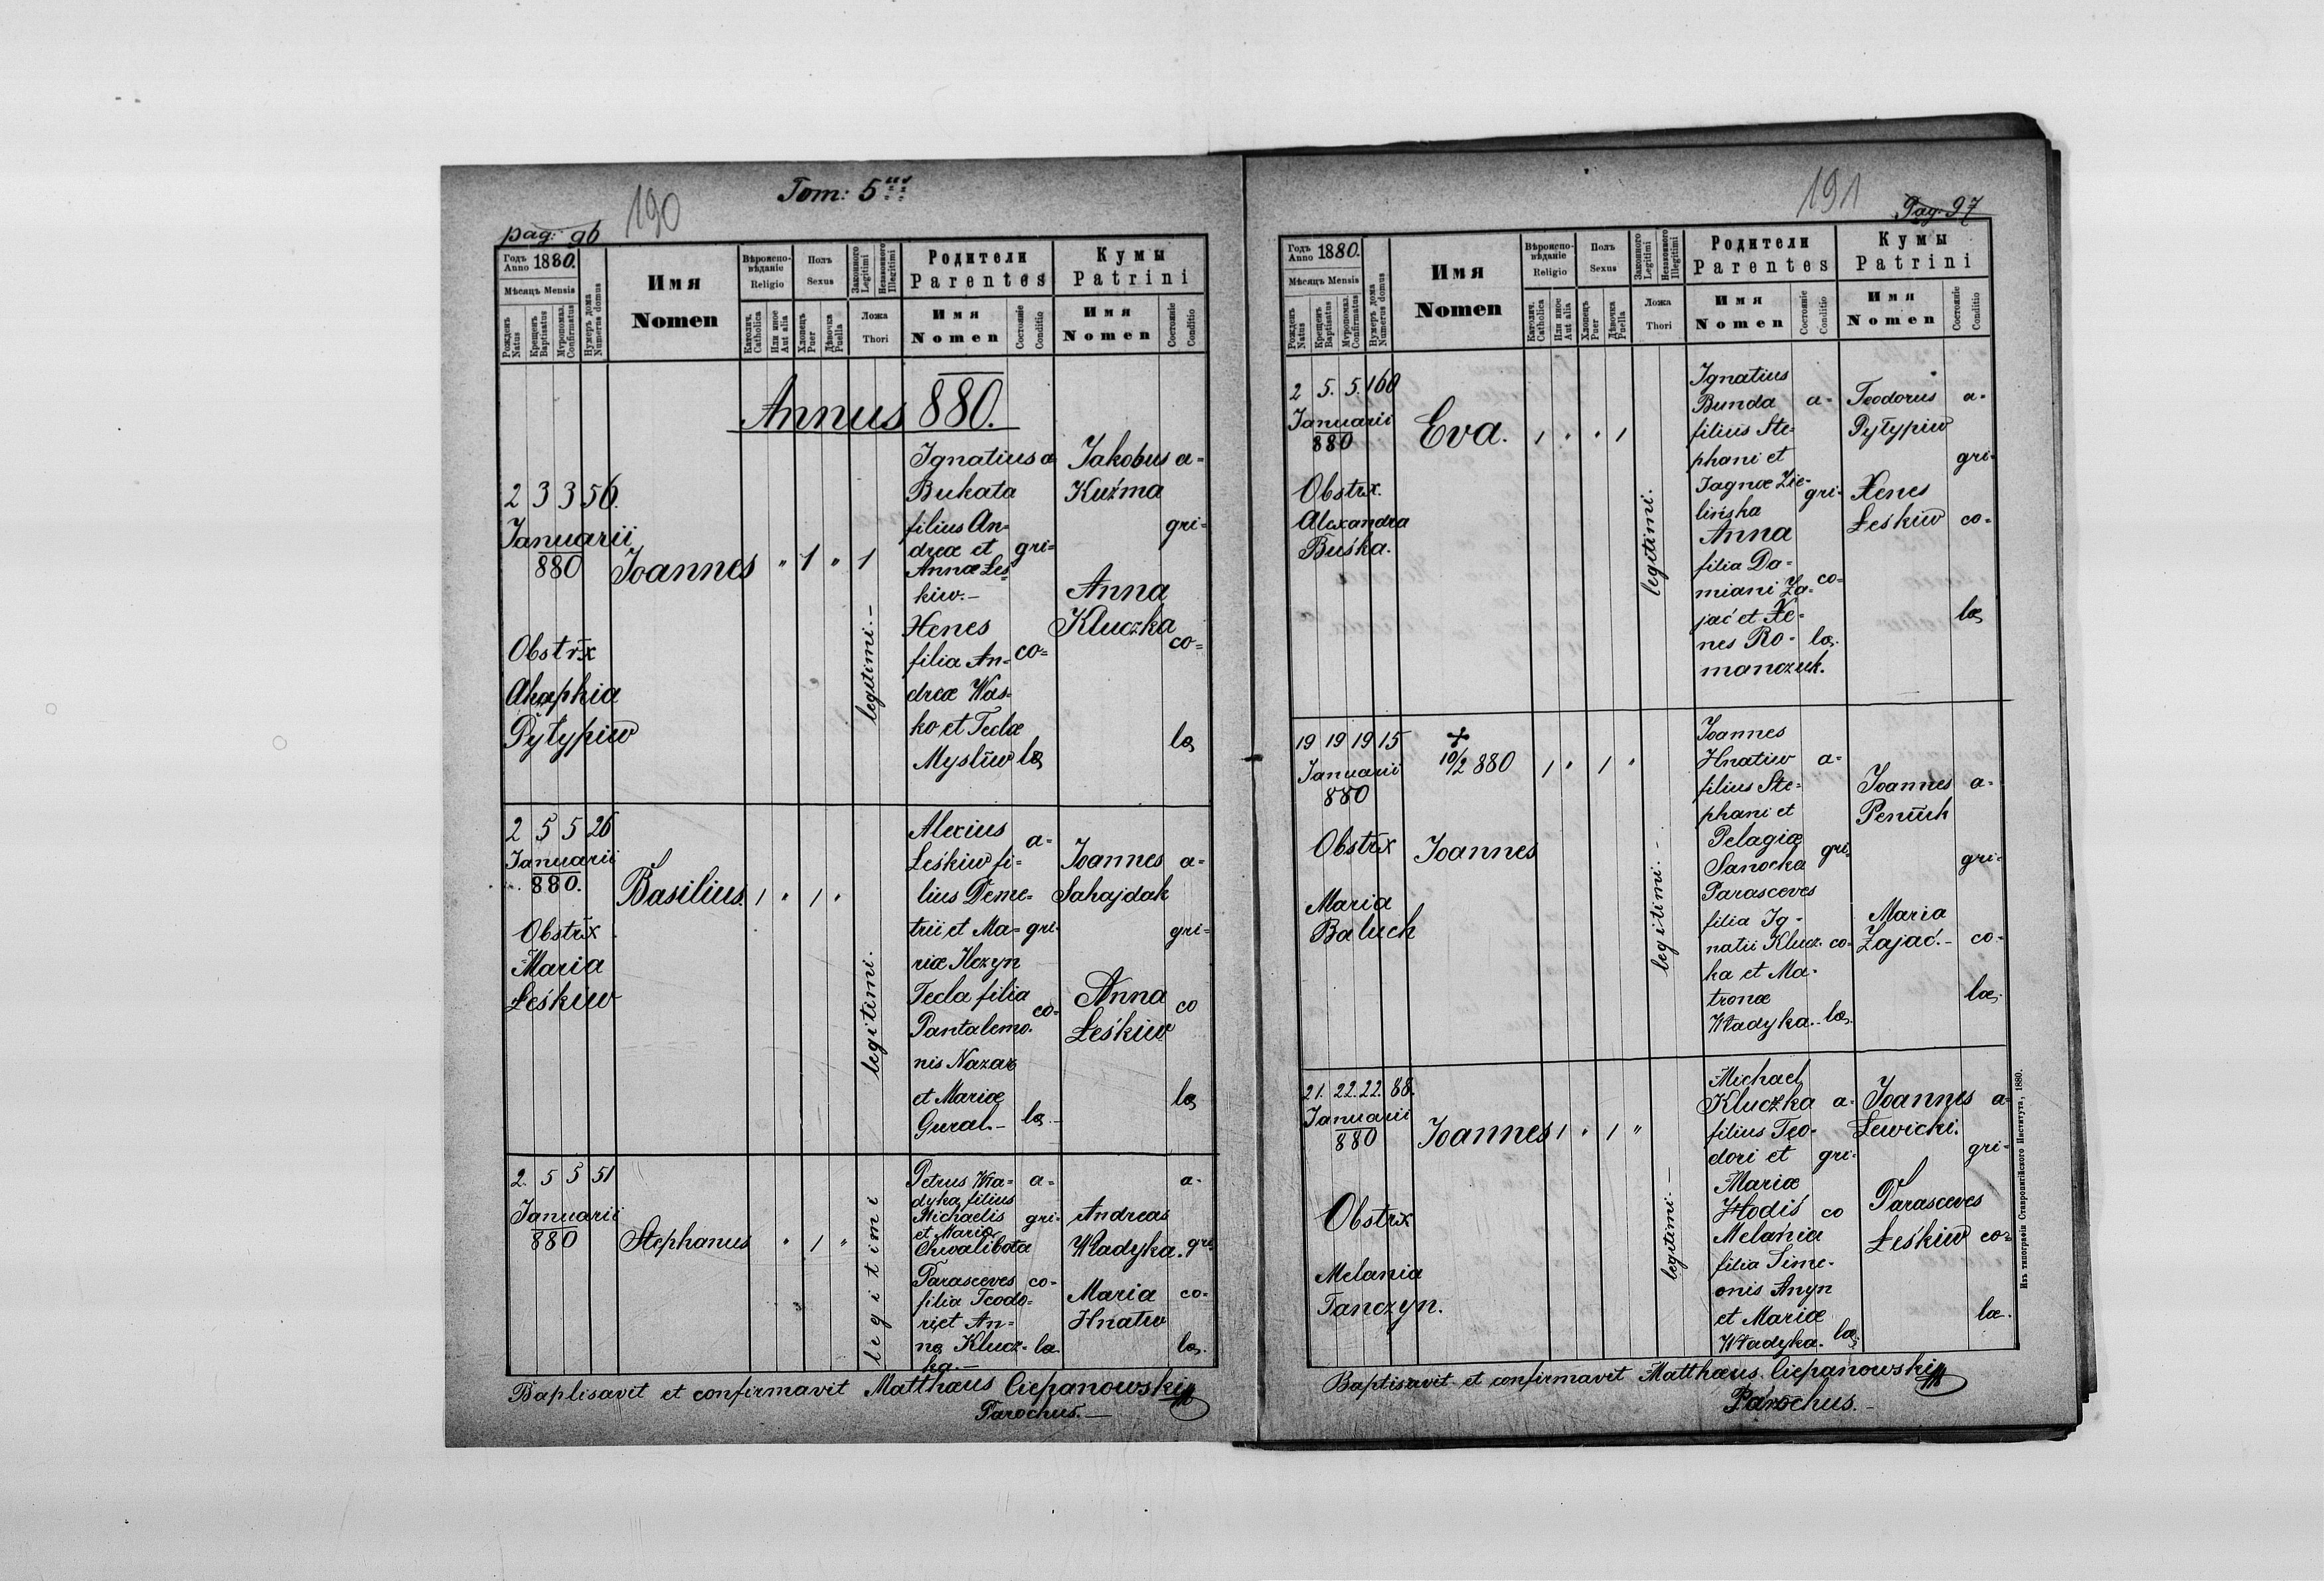 Tom: 5us
190
pag: 96
Годъ Anno 1880.
Мѣсяцъ Mensis
Рожденъ Natus
Крещенъ Baptisatus
Мѵропомаз. Confirmatus
Нумеръ дома Numerus domus
Имя Nomen
Вѣроисповѣданіе Religio
Католич. Catholica
Или иное Aut alia
Полъ Sexus
Хлопецъ Puer
Дѣвочка Puella
Законного Legitimi
Незаконного Illegitimi
Ложа Thori
Родители Parentes
Имя Nomen
Состояніе Conditio
Кумы Patrini
Имя Nomen
Состояніе Conditio
Annus 880.
2 3 3 56.
Januarii
880
Joannes " 1 " 1
Obstrix
Ahaphia
Pyłypiw
legitimi.-
Ignatius a
Bukata
filius An-
dreæ et gri-
Annæ Leś-
kiw.-
Xenes
filia An- co-
dreæ Was-
ko et Teclæ
Mysliw læ
Jakobus a-
Kuźma
gri-
Anna
Kluczka
co-
læ
2 5 5 26
Januarii
880.
Basilius. 1 " 1 "
Obstrix
Maria
Łeśkiw
legitimi.
Alexius a-
Łeśkiw fi-
lius Deme-
trii et Ma- gri-
riæ Hezyn
Tecla filia co-
Pantalemo-
nis Nazar
et Mariæ
Gural.- læ.
Joannes a-
Sahajdak
gri-
Anna co
Łeśkiw
læ
2. 5 5 51
Januarii
880
Stephanus " 1 "
legitimi
Petrus Wła- a-
dyka filius
Michaelis gri-
et Mariæ
Chwalibota
Parasceves co-
filia Teodo-
ri et An-
næ Klucz- læ.
ka.-
a-
Andreas
Władyka. gri
Maria co-
Hnatiw
læ.
Baptisavit et confirmavit Matthæus Ciepanowski
Parochus.-
191
Pag: 97
Годъ Anno 1880.
Мѣсяцъ Mensis
Рожденъ Natus
Крещенъ Baptisatus
Мѵропомаз. Confirmatus
Нумеръ дома Numerus domus
Имя Nomen
Вѣроисповѣданіе Religio
Католич. Catholica
Или иное Aut alia
Полъ Sexus
Хлопецъ Puer
Дѣвочка Puella
Законного Legitimi
Незаконного Illegitimi
Ложа Thori
Родители Parentes
Имя Nomen
Состояніе Conditio
Кумы Patrini
Имя Nomen
Состояніе Conditio
2 5. 5. 160
Januarii
880
Eva. 1 " " 1
Obstrix.
Alexandra
Buśka.
legitimi.
Ignatius
Bunda a-
filius Ste-
phani et
Jagnæ Zie- gri-
lińska
Anna
filia Da-
miani Za- co-
jać et Xe-
nes Ro- læ.
manczuk.
Teodorus a-
Pyłypiw
gri-
Xenes
Łeśkiw co-
læ
19 19 19 15
Januarii
880
+
10/2 880 1 " 1 "
Obstrix Joannes
Maria
Baluch
legitimi.-
Joannes
Hnatiw a-
filius Ste-
phani et
Pelagiæ
Sanocka gri-
Parasceves
filia Ig-
natii Klucz- co-
ka et Ma-
tronæ
Władyka. læ.
Joannes a-
gri-
Maria
Zajać.- co-
læ.
21. 22. 22. 88.
Januarii
880
Joannes 1 " 1 "
Obstrix
Melania
Tanczyn.
legitimi.-
Michael
Kluczka a-
filius Teo-
dori et gri-
Mariæ
Hodiś co
Melania
filia Sime-
onis Anyn
et Mariæ
Władyka. læ.
Joannes a-
Lewicki.
gri-
Parasceves
Łeśkiw co-
læ.
Baptisavit et confirmavit Matthæus Ciepanowski
Parochus.-
Изъ типографіи Ставропигійского Института, 1880.